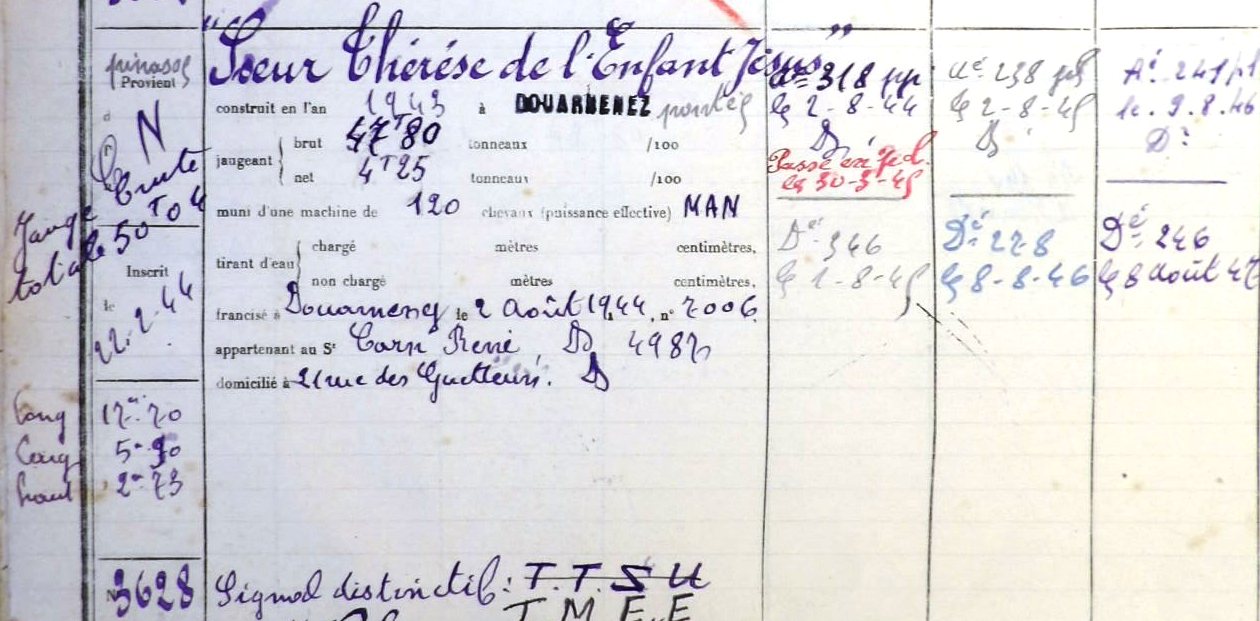 "Sœur Thérése de l'Enfant Jésus"
pinasse
Provient
d
N
Jauge Brute
totale 50 T 04
Inscrit
le
22-2-44
long 17m 70
larg
haut 2m 73
N 3628
construit en l'an 1943 à DOUARNENEZ pontée
jaugeant
brut 47T80 tonneaux /100
net 4T25 tonneaux /100
muni d'une machine de 120 chevaux (puissance effective) MAN
tirant d'eau
chargé mètres centimètres,
non chargé mètres centimètres,
francisé à Douarnenez le 2 Août 1944, n° 7006
appartenant au Sr Carn René, D 4987
domicilié à 21 rue des Guetteurs. D
Signal distinctif: T. T. S U
T M F E
Aé 318 pp
le 2-8-44
D
Passé en
le 30-3-45
Dé 346
le 1-8-45
Aé 238 pp
le 2-8-45
D
Dé 278
le 8-8-46
Aé 241 pp
le 9.8.46
D:
Dé 246
le 8 août 47